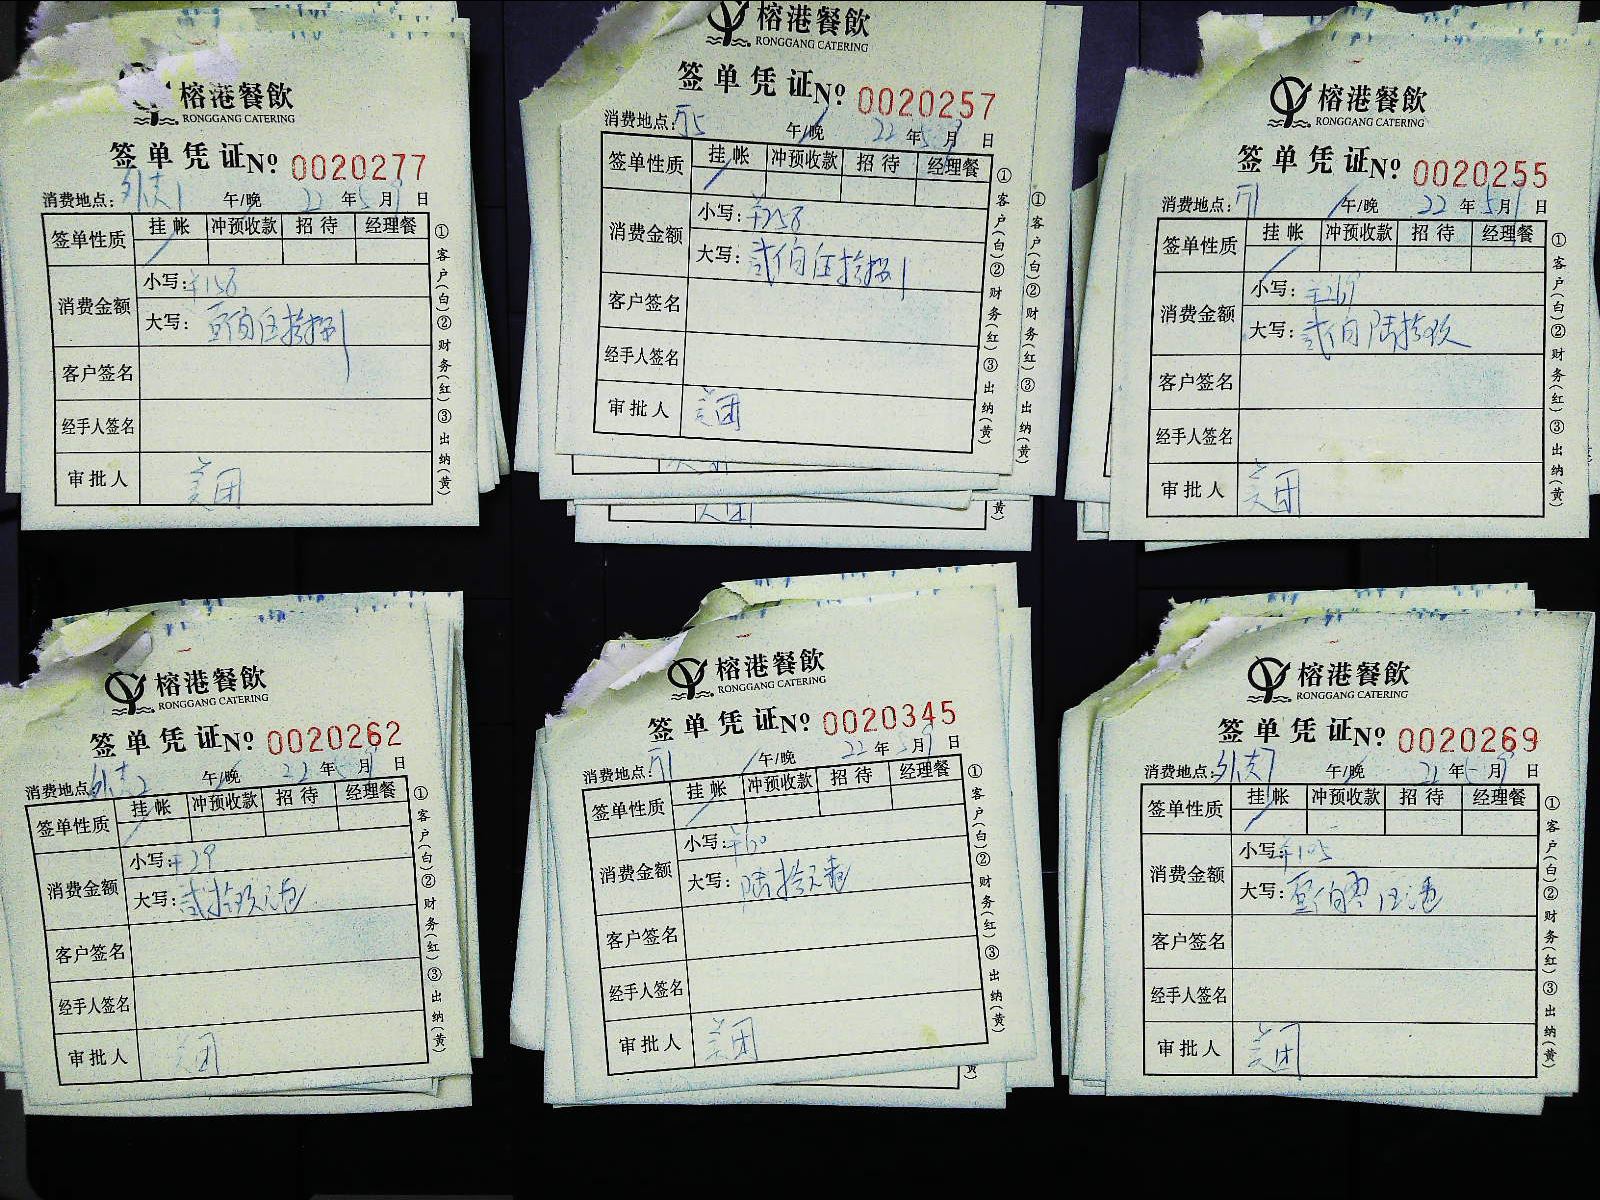 榕港餐飲
RONGGANG CATERING
签单凭证 № 0020277
消费地点：外卖1 午/晚 22年5月9日
签单性质 挂帐 冲预收款 招待 经理餐
消费金额 小写：¥158
大写：壹佰伍拾捌
客户签名
经手人签名
审批人 美团
①客户(白)②财务(红)③出纳(黄)
榕港餐飲
RONGGANG CATERING
签单凭证 № 0020257
消费地点： 午/晚 22年5月9日
签单性质 挂帐 冲预收款 招待 经理餐
消费金额 小写：¥258
大写：贰佰伍拾捌
客户签名
经手人签名
审批人 美团
①客户(白)②财务(红)③出纳(黄)
①客户(白)②财务(红)③出纳(黄)
榕港餐飲
RONGGANG CATERING
签单凭证 № 0020255
消费地点： 午/晚 22年5月 日
签单性质 挂帐 冲预收款 招待 经理餐
消费金额 小写：¥269
大写：贰佰陆拾玖
客户签名
经手人签名
审批人 美团
①客户(白)②财务(红)③出纳(黄)
榕港餐飲
RONGGANG CATERING
签单凭证 № 0020262
消费地点：外卖2 午/晚 22年 月9日
签单性质 挂帐 冲预收款 招待 经理餐
消费金额 小写：¥29
大写：贰拾玖元
客户签名
经手人签名
审批人 美团
①客户(白)②财务(红)③出纳(黄)
榕港餐飲
RONGGANG CATERING
签单凭证 № 0020345
消费地点： 午/晚 22年 月9日
签单性质 挂帐 冲预收款 招待 经理餐
消费金额 小写：¥60
大写：陆拾元
客户签名
经手人签名
审批人 美团
①客户(白)②财务(红)③出纳(黄)
榕港餐飲
RONGGANG CATERING
签单凭证 № 0020269
消费地点：外卖 午/晚 22年 月9日
签单性质 挂帐 冲预收款 招待 经理餐
消费金额 小写：¥105
大写：壹佰零伍
客户签名
经手人签名
审批人 美团
①客户(白)②财务(红)③出纳(黄)